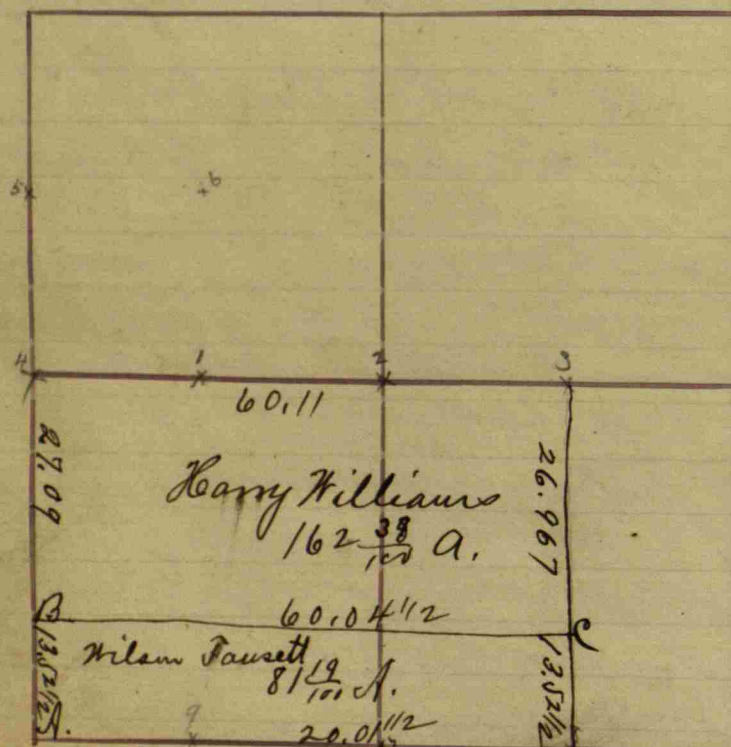 5
6
4
1
2
3
60.11
27.09
26.967
Harry Williams
162 38/100 A.
B
60.04 1/2
C
13.52 1/2
Wilson Fausett
81 19/100 A.
13.52 1/2
A.
9
20.01 1/2